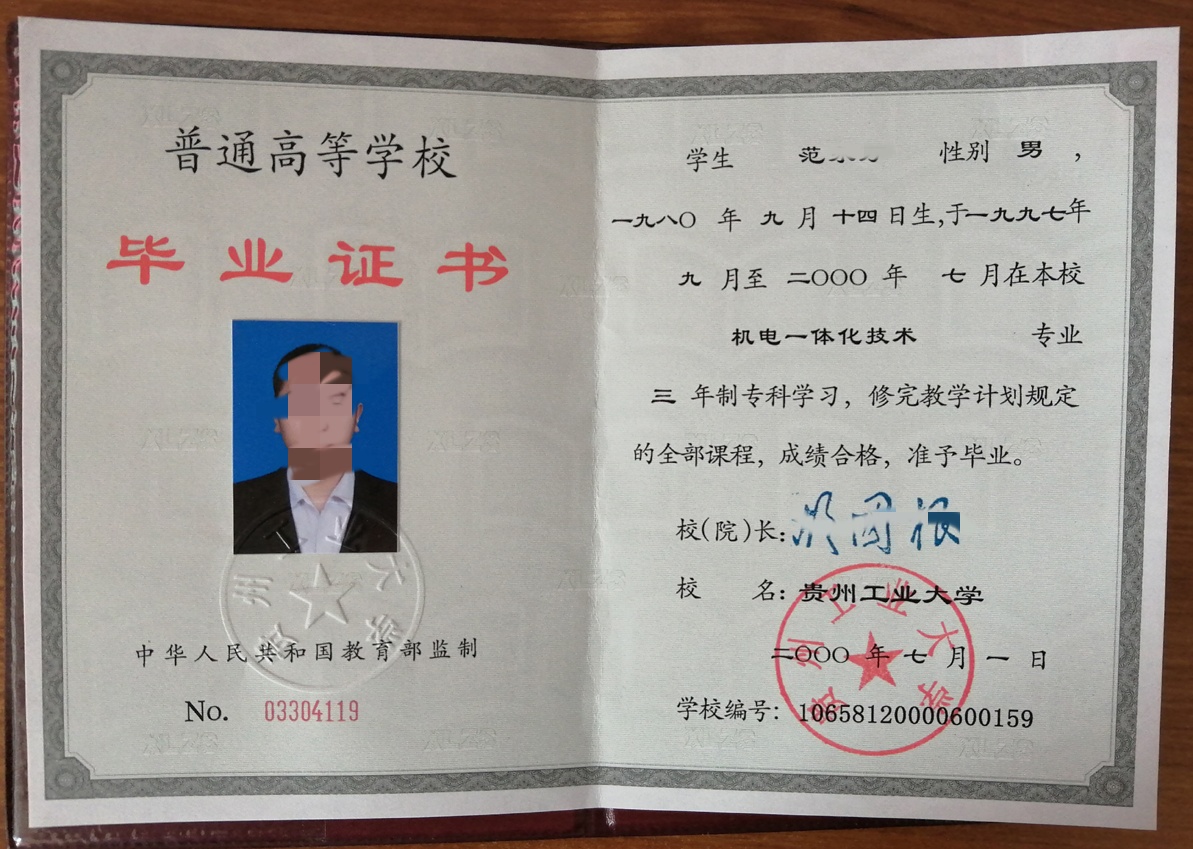 普通高等学校
毕业证书
中华人民共和国教育部监制
No. 03304119
学生 范 性别 男 ，
一九八〇 年 九 月 十四 日生,于一九九七年
九 月至 二〇〇〇 年 七 月在本校
机电一体化技术 专业
三 年制专科学习，修完教学计划规定
的全部课程，成绩合格，准予毕业。
校(院)长:
校 名: 贵州工业大学
二〇〇〇 年 七 月 一 日
学校编号: 10658120000600159
贵州工业大学
贵州工业大学